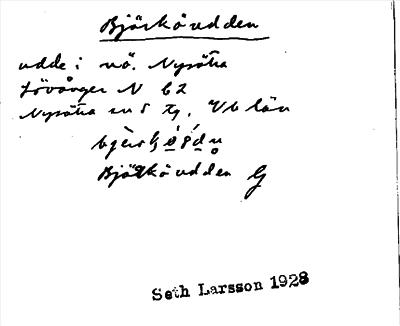 Björköudden
udde i nö. Nysätra
Lövånger N 62
Nysätra sn o tg, Vb län
Björköudden G
Seth Larsson 1928